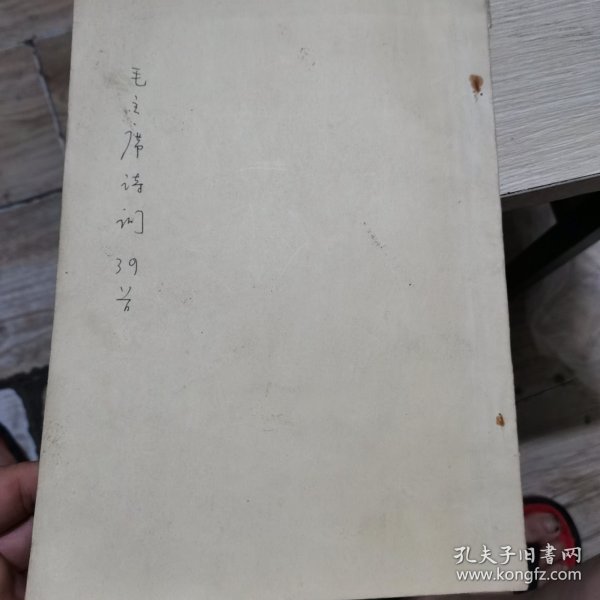 毛主席诗词39首
孔夫子旧书网
www.kongfz.com